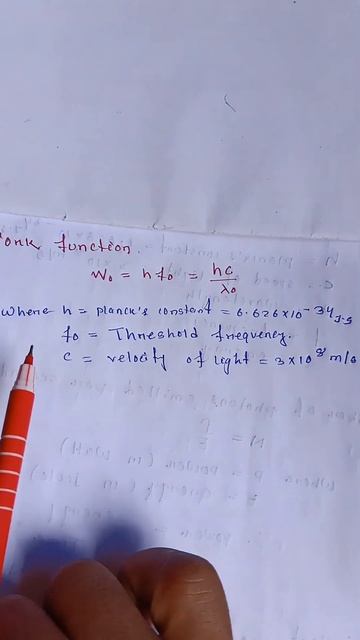 function.
W₀ = h f₀ = hc/λ₀
Where h = planck's constant = 6.626×10⁻³⁴ J-s
f₀ = Threshold frequency.
c = velocity of light = 3×10⁸ m/s